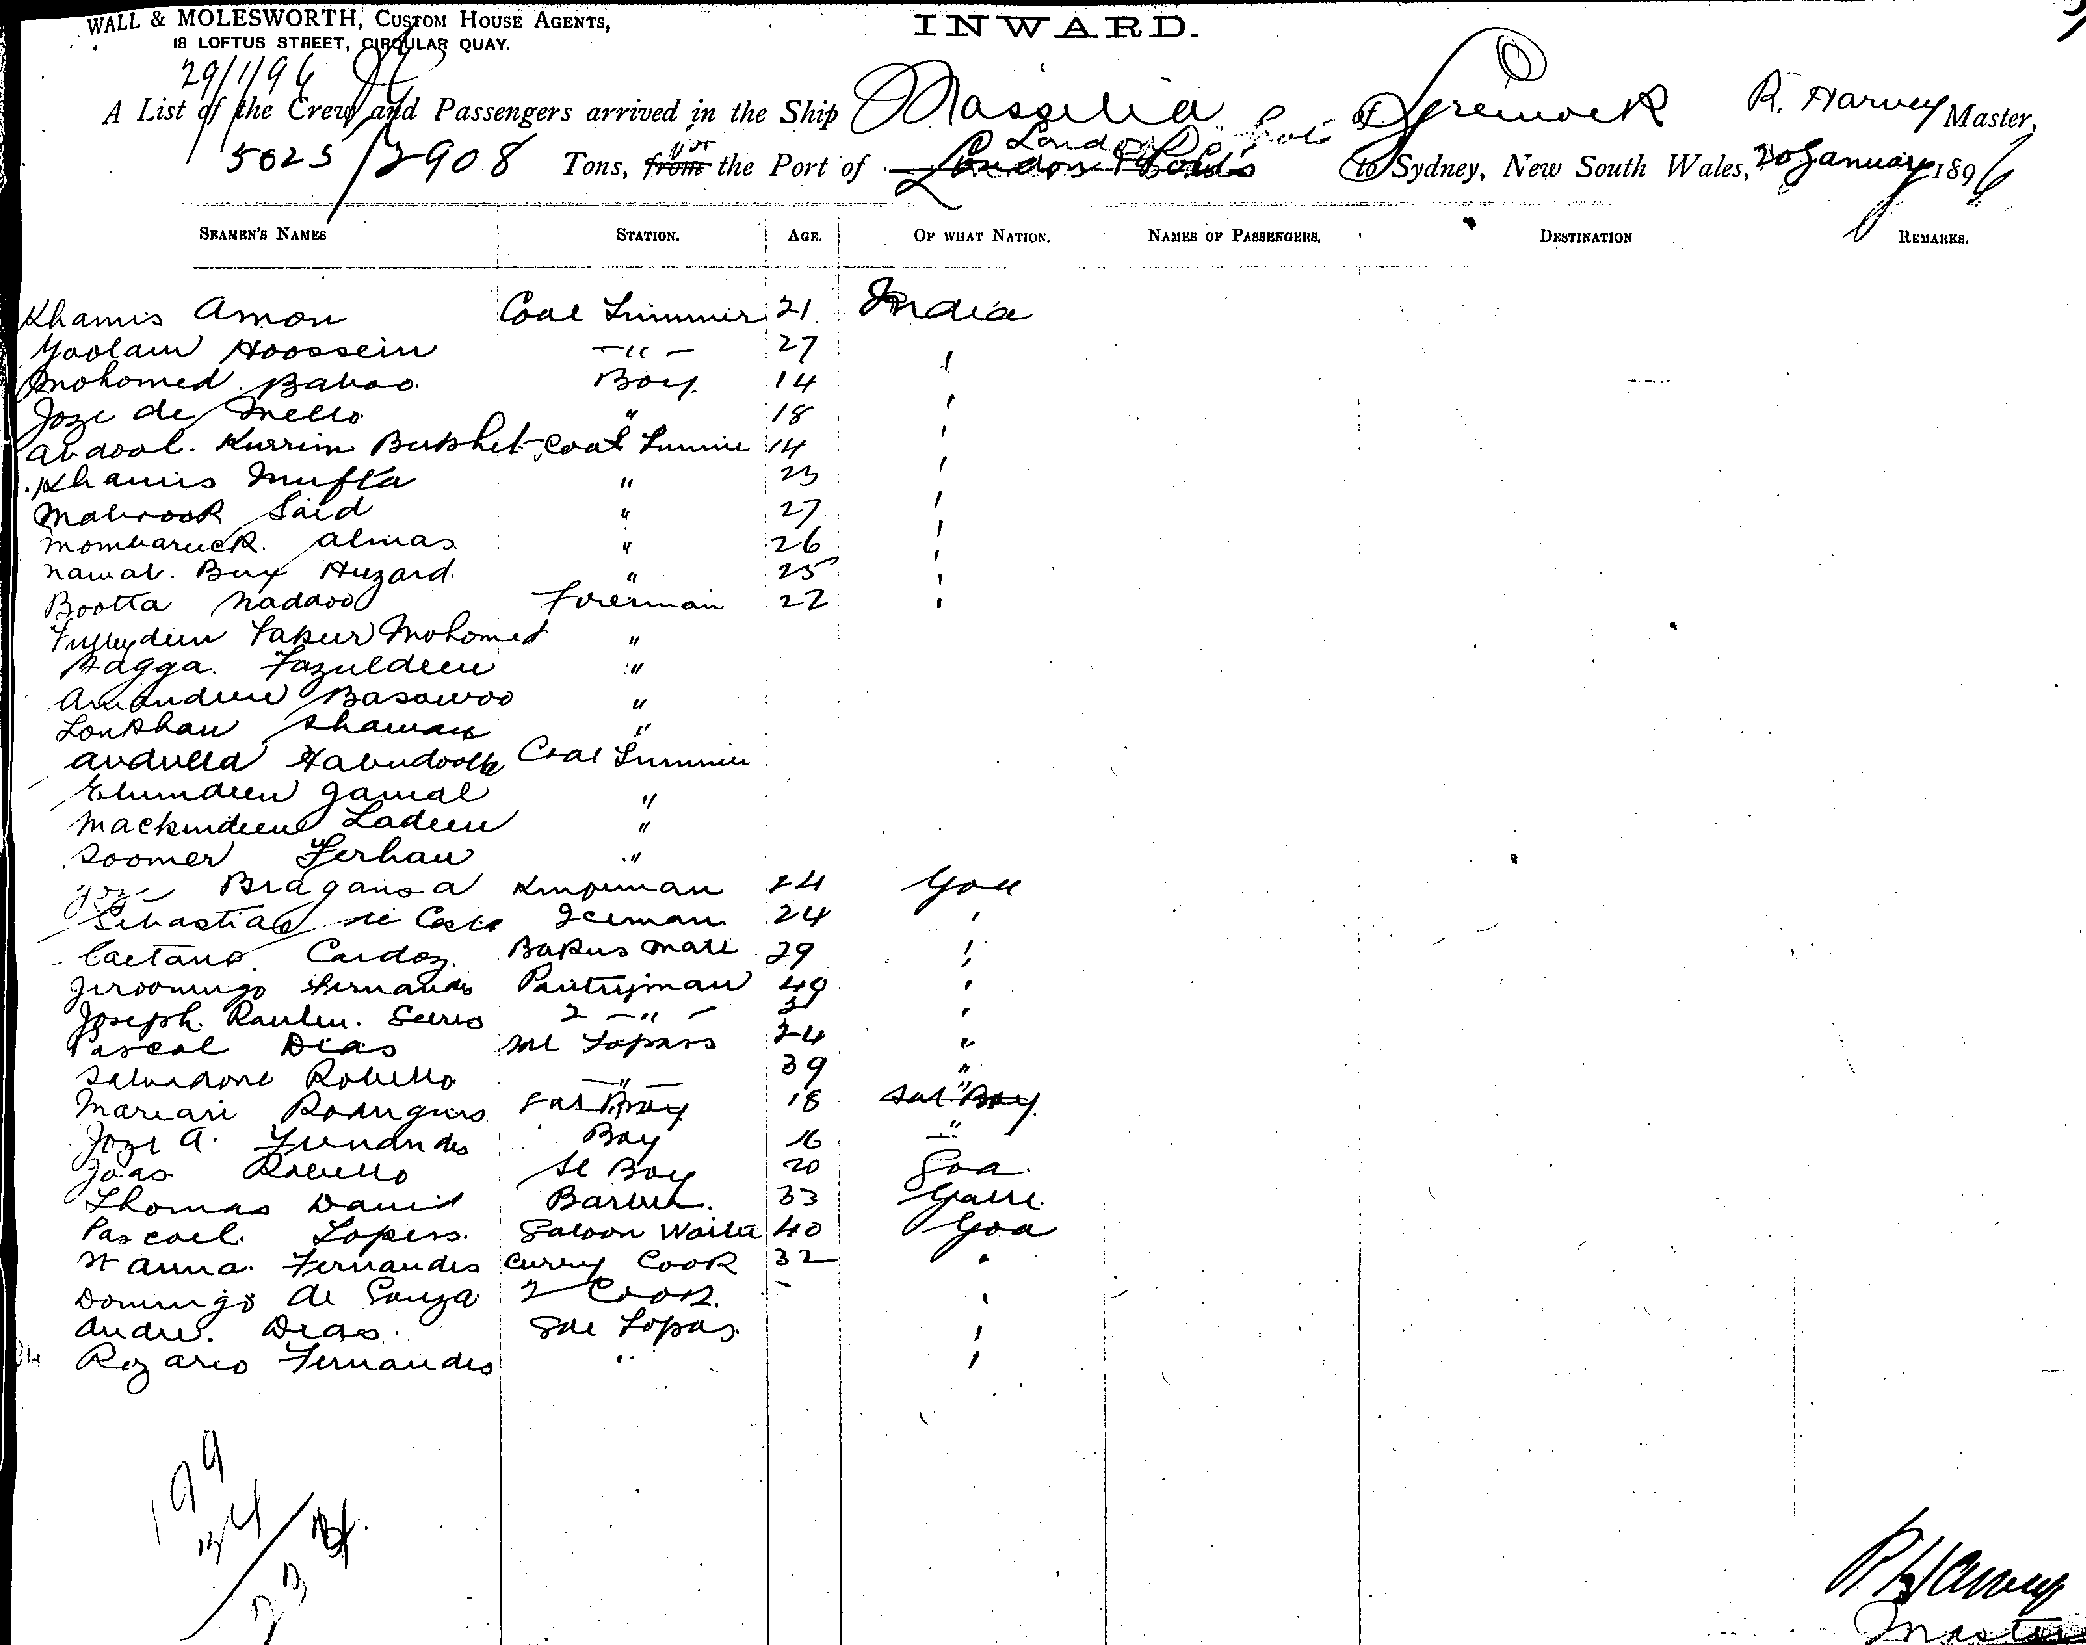 WALL & MOLESWORTH, CUSTOM HOUSE AGENTS,
18 LOFTUS STREET, CIRCULAR QUAY.
INWARD.
29/1/96
A List of the Crew and Passengers arrived in the Ship Massilia of Greenock R. Harvey Master,
5025/2908 Tons, from the Port of London & Ports to Sydney, New South Wales, 20 January 1896
SEAMEN'S NAMES STATION. AGE. OF WHAT NATION. NAMES OF PASSENGERS. DESTINATION REMARKS.
Khamis Amon Coal Trimmer 21 India
Goolam Hoossein " 27 "
Mohomed Baboo Boy 14 "
Joze de Mello " 18 "
Abdool Kurrim Bukshet Coal Trimmer 14 "
Khamis Mufta " 23 "
Mabrook Said " 27 "
Mombaruck Almas " 26 "
Nawab Bux Huzard " 25 "
Bootta Nadaoo Fireman 22 "
Fakur Mohomed "
Hagga Fazuldeen "
Amandeen Basowoo "
"
Abdulla Coal Trimmer
Elumdeen Jamal "
Mackindeen Ladeen "
Soomer Ferhan "
Joze Bragansa 24 Goa
Sebastiao de Costa Iceman 24 "
Caetano Cardoz Bakers Mate 29 "
Jeroomingo Fernandes Pantryman 49 "
Joseph 2 " "
Pascal Dias Topass 24 "
Salvadore Robello " 39 "
Rodrigues 18 "
Joze A. Fernandes Boy 16 "
Joao Rebello Sl Boy 20 Goa
Thomas David Barber. 33 Galle
Pascoal Lopes Saloon Waiter 40 Goa
St Anna Fernandes Curry Cook 32 "
Domingo de Souza 2 Cook - "
Andre. Dias. Topas "
Rozario Fernandes " "
199
34
233
R Harvey
Master